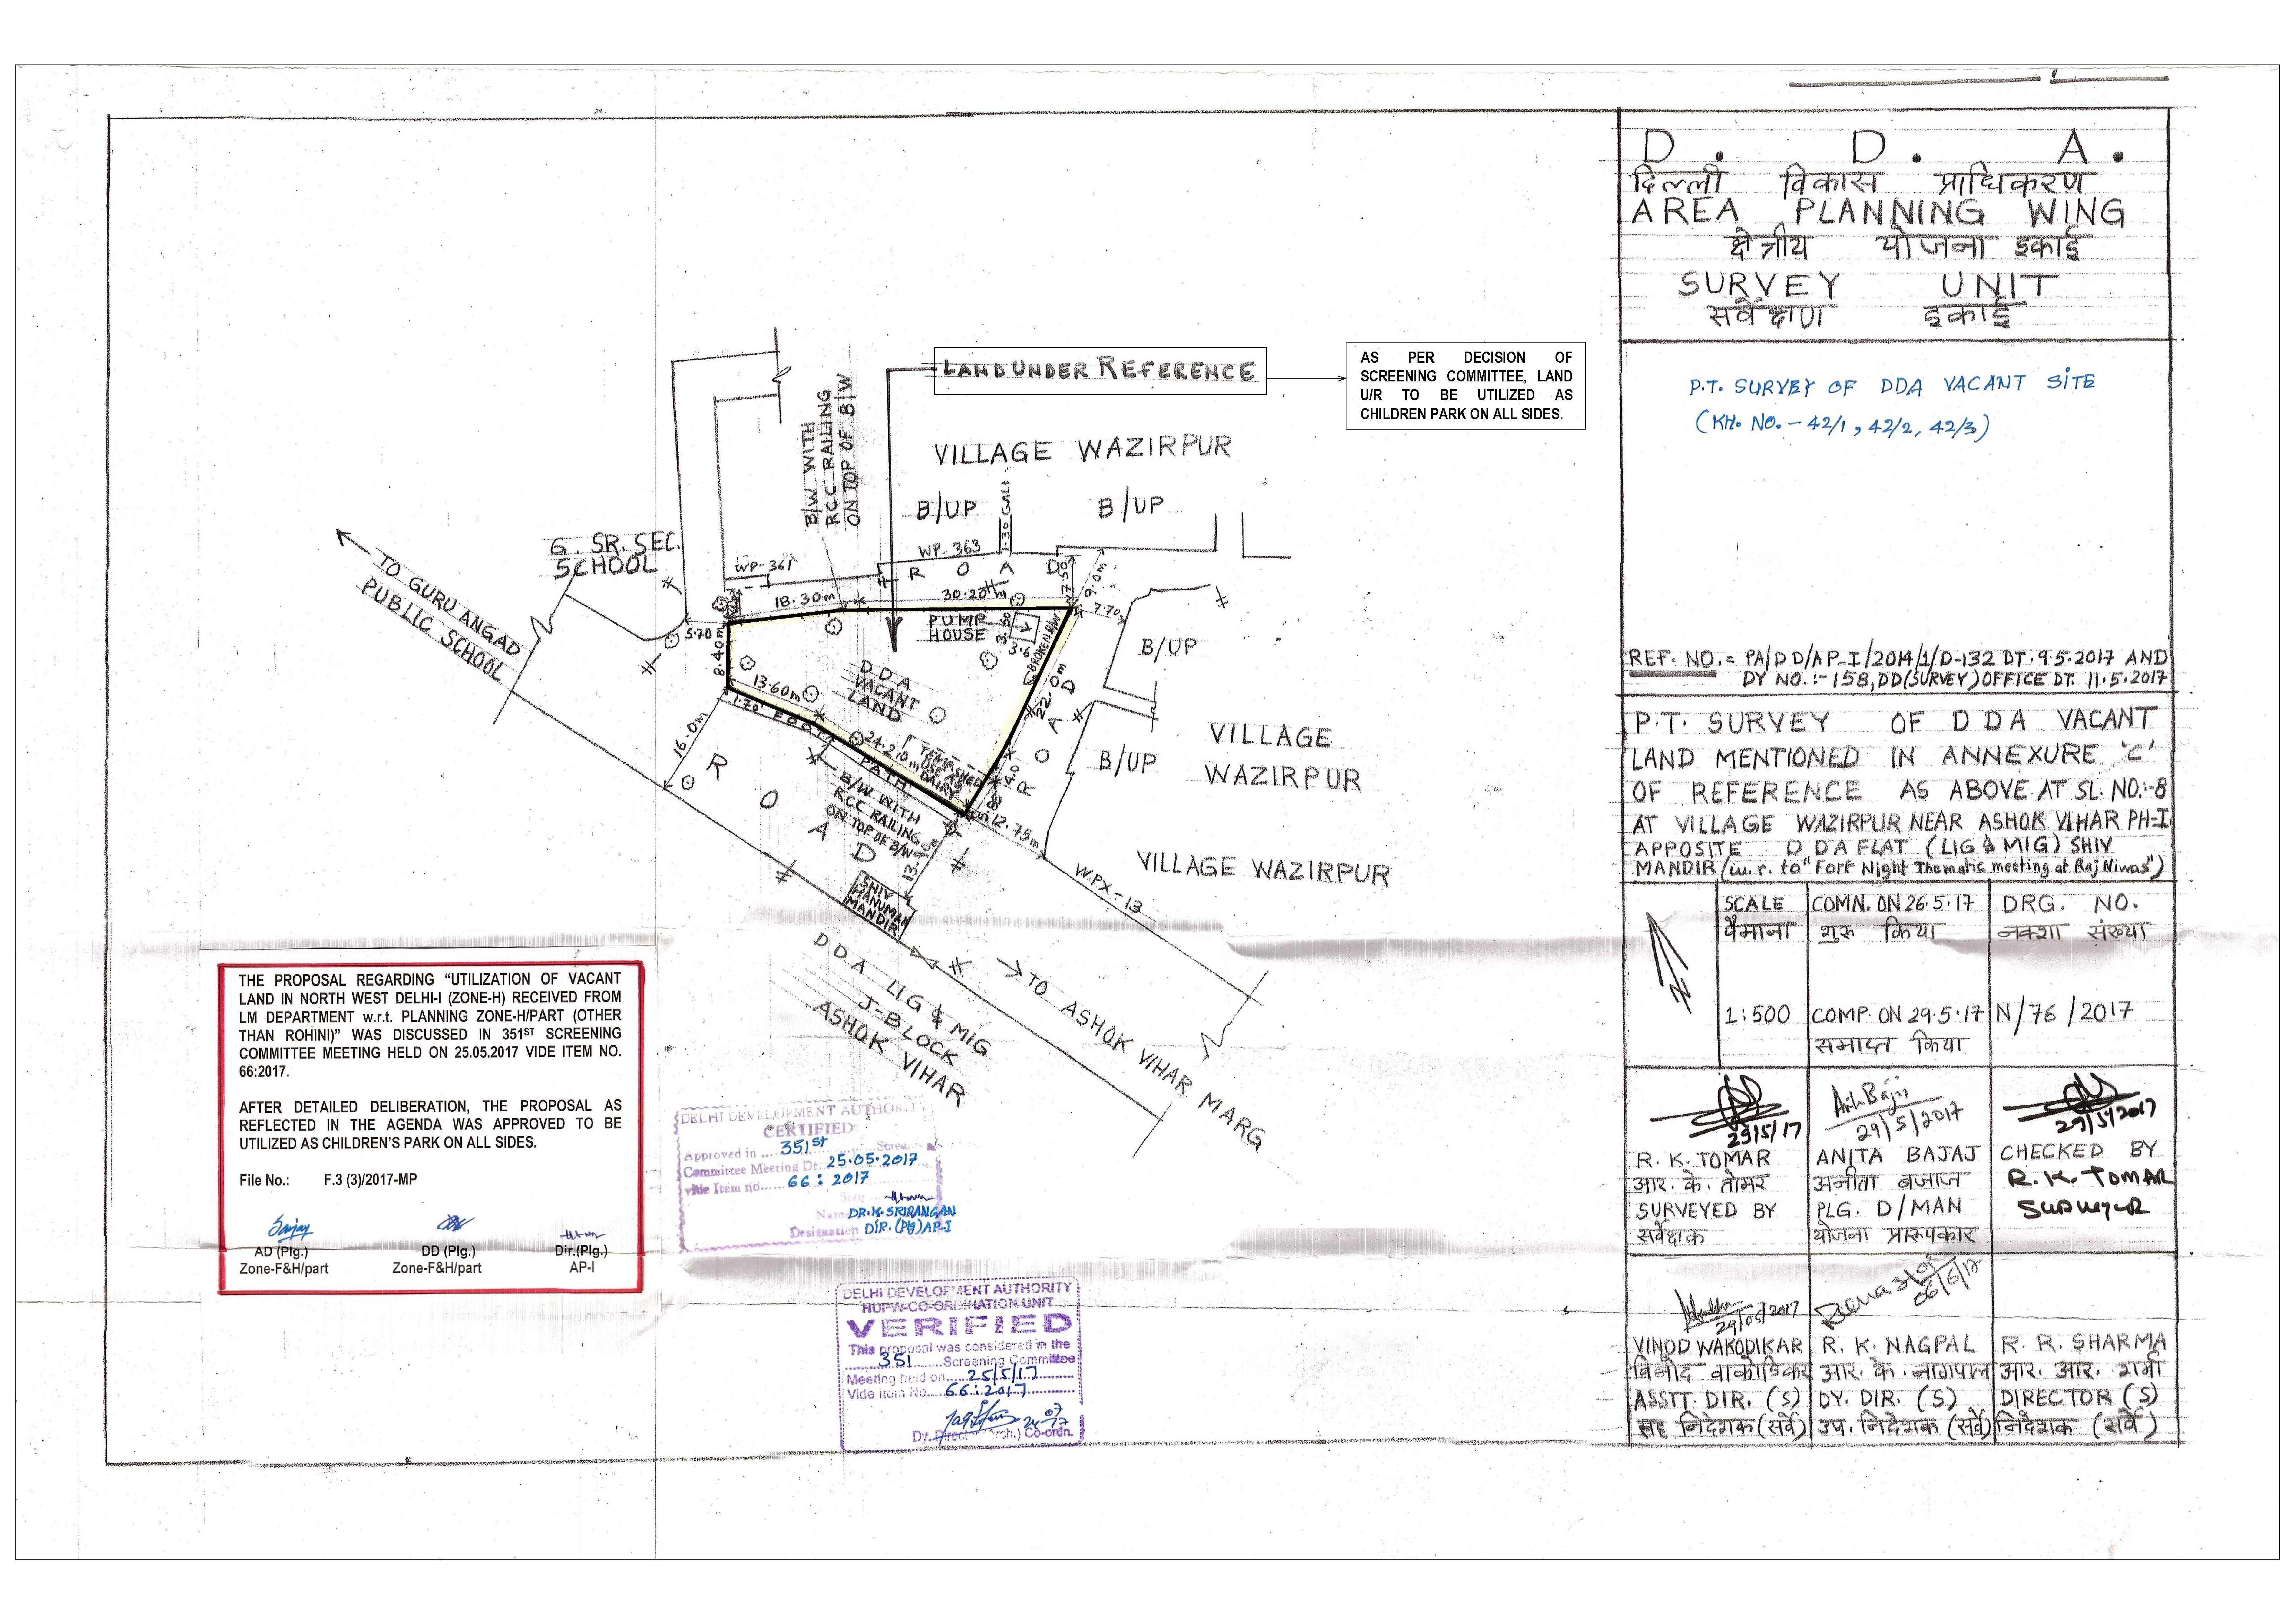 D. D. A.
दिल्ली विकास प्राधिकरण
AREA PLANNING WING
क्षेत्रीय योजना इकाई
SURVEY UNIT
सर्वेक्षण इकाई
P.T. SURVEY OF DDA VACANT SITE
(KH. NO. - 42/1, 42/2, 42/3)
REF. NO. = PA/DD/AP-I/2014/1/D-132 DT. 9.5.2017 AND
DY NO. :- 158, DD(SURVEY) OFFICE DT. 11.5.2017
P.T. SURVEY OF DDA VACANT
LAND MENTIONED IN ANNEXURE 'C'
OF REFERENCE AS ABOVE AT SL. NO.:-8
AT VILLAGE WAZIRPUR NEAR ASHOK VIHAR PH-I
APPOSITE DDA FLAT (LIG & MIG) SHIV
MANDIR (w.r. to "Fort Night Thematic meeting at Raj Niwas")
SCALE COMN. ON 26.5.17 DRG. NO.
पैमाना शुरू किया नक्शा संख्या
1:500 COMP. ON 29.5.17 N/76/2017
समाप्त किया
29/5/17 29/5/2017 29/5/2017
R. K. TOMAR ANITA BAJAJ CHECKED BY
आर. के. तोमर अनीता बजाज R.K. TOMAR
SURVEYED BY PLG. D/MAN SURVEYOR
सर्वेक्षक योजना प्रारूपकार
29/05/2017 06/6/17
VINOD WAKODIKAR R. K. NAGPAL R. R. SHARMA
विनोद वाकोडिकर आर. के. नागपाल आर. आर. शर्मा
ASSTT. DIR. (S) DY. DIR. (S) DIRECTOR (S)
सह निदेशक (सर्वे) उप. निदेशक (सर्वे) निदेशक (सर्वे)
LAND UNDER REFERENCE
AS PER DECISION OF
SCREENING COMMITTEE, LAND
U/R TO BE UTILIZED AS
CHILDREN PARK ON ALL SIDES.
B/W WITH
RCC RAILING
ON TOP OF B/W
VILLAGE WAZIRPUR
B/UP
1.30 GALI
B/UP
G. SR. SEC.
SCHOOL
TO GURU ANGAD
PUBLIC SCHOOL
WP-361
WP-363
ROAD
7.50
9.0m
7.70
18.30m
30.20m
5.70
8.40m
PUMP
HOUSE
3.50
3.6
BROKEN B/W
22.0m
ROAD
B/UP
DDA
VACANT
LAND
13.60m
1.70 FOOT
PATH
24.20m
TEMP. SHED
USE AS
DAIRY
4.0
16.0m
ROAD
B/W WITH
RCC RAILING
ON TOP OF B/W
12.75m
B/UP
VILLAGE
WAZIRPUR
VILLAGE WAZIRPUR
WPX-13
SHIV
HANUMAN
MANDIR
DDA LIG & MIG
J-BLOCK
ASHOK VIHAR
TO ASHOK VIHAR MARG
THE PROPOSAL REGARDING “UTILIZATION OF VACANT
LAND IN NORTH WEST DELHI-I (ZONE-H) RECEIVED FROM
LM DEPARTMENT w.r.t. PLANNING ZONE-H/PART (OTHER
THAN ROHINI)” WAS DISCUSSED IN 351ST SCREENING
COMMITTEE MEETING HELD ON 25.05.2017 VIDE ITEM NO.
66:2017.
AFTER DETAILED DELIBERATION, THE PROPOSAL AS
REFLECTED IN THE AGENDA WAS APPROVED TO BE
UTILIZED AS CHILDREN’S PARK ON ALL SIDES.
File No.: F.3 (3)/2017-MP
AD (Plg.) DD (Plg.) Dir.(Plg.)
Zone-F&H/part Zone-F&H/part AP-I
DELHI DEVELOPMENT AUTHORITY
CERTIFIED
Approved in 351st Screen
Committee Meeting Dt. 25.05.2017
vide Item no. 66 : 2017
Name DR. K. SRIRANGAN
Designation DIR. (Plg) AP-I
DELHI DEVELOPMENT AUTHORITY
HUPW-CO-ORDINATION UNIT
VERIFIED
This proposal was considered in the
351 Screening Committee
Meeting held on 25/5/17
Vide Item No. 66:2017
Co-ordn.